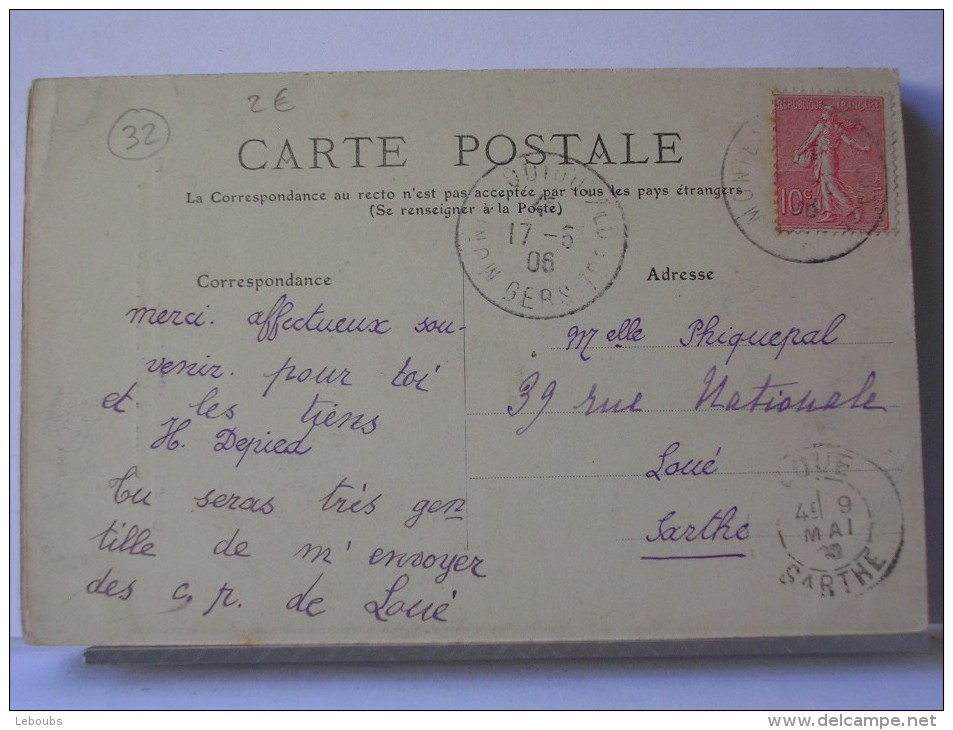 2€
32
CARTE POSTALE
La Correspondance au recto n'est pas acceptée par tous les pays étrangers
(Se renseigner à la Poste)
RÉPUBLIQUE FRANÇAISE
10c
17-5
06
GERS
Correspondance
merci. affectueux sou-
venir. pour toi
et les tiens
H. Depied
Tu seras très gen
tille de m'envoyer
des c. p. de Loué
Adresse
Melle Phiquepal
39 rue Nationale
Loué
Sarthe
LOUÉ
4E 9
MAI
SARTHE
Leboubs
www.delcampe.net